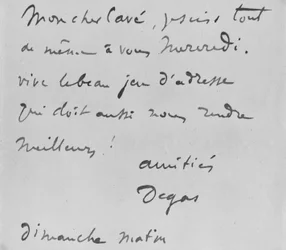 Mon cher Cavé, je suis tout
de même à vous Mercredi.
vive le beau jeu d'adresse
qui doit aussi nous rendre
meilleurs !
amitiés
Degas
dimanche matin